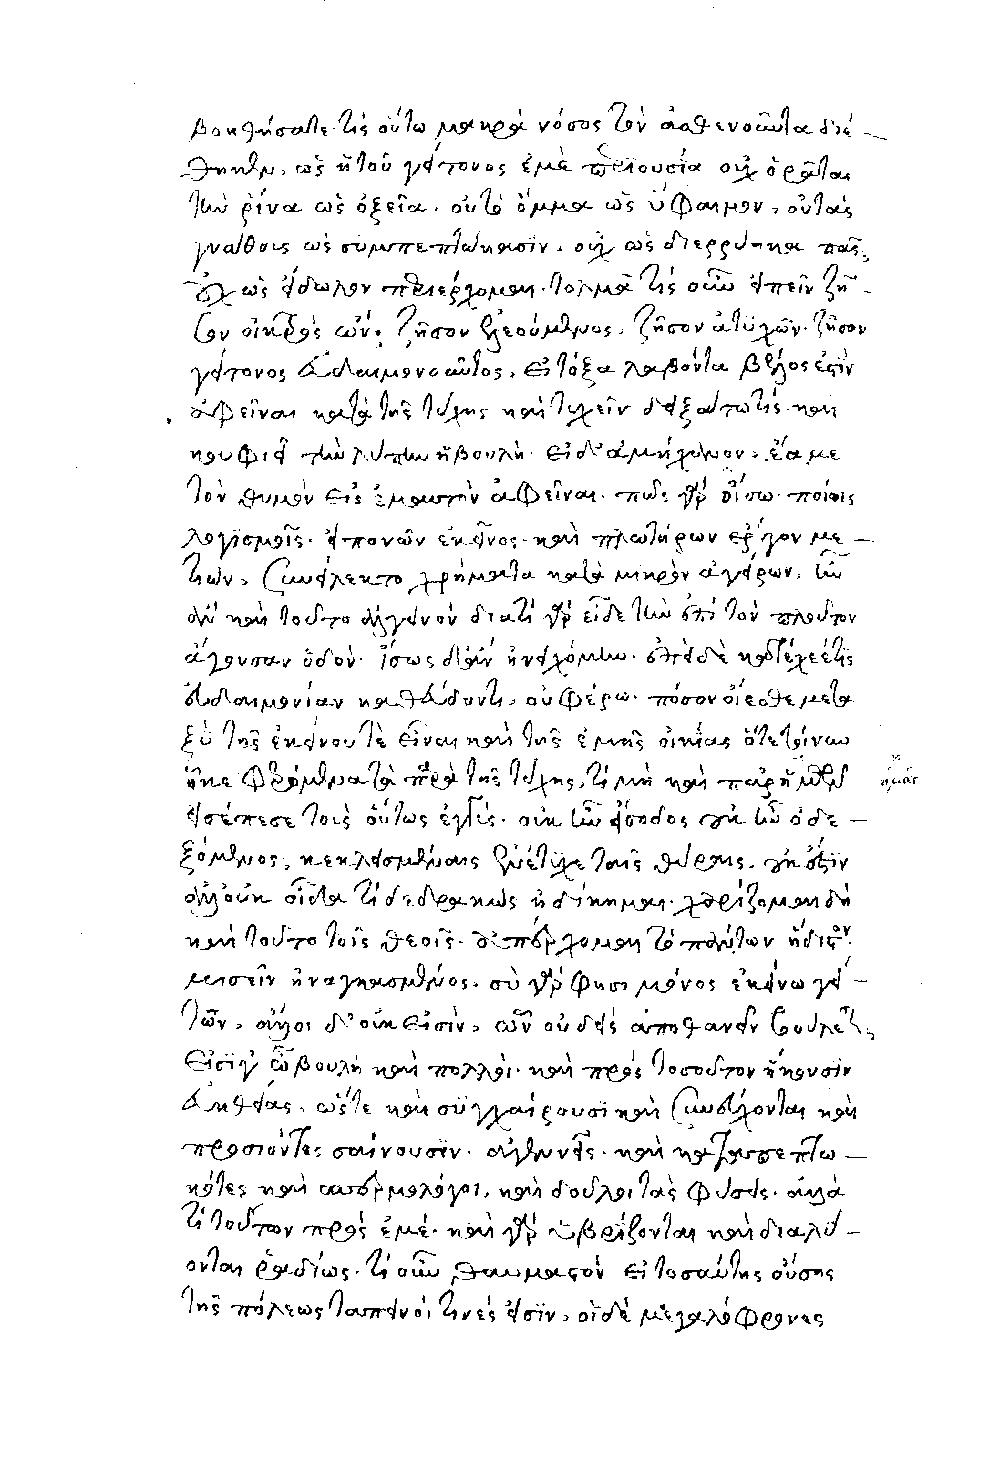 βοηθήσατε. τίς οὕτω μακρὰ νόσος τὸν ἀσθενοῦντα διέ
θηκεν, ὡς ἡ τοῦ γείτονος ἐμὲ περιουσία. οὐχ ὁρᾶται
τὴν ῥῖνα ὡς ὀξεῖα. οὐ τὸ ὄμμα ὡς ὕφαιμον, οὐ τὰς
γνάθους ὡς συμπεπτώκασιν, οὐχ ὡς διερρύηκα πᾶς,
οὐχ ὡς εἴδωλον περιέρχομαι. τολμᾷ τίς οὖν εἰπεῖν ζῆ
σον οἰκτρὸς ὤν; ζῆσον ἐλεούμενος, ζῆσον ἀτυχῶν. ζῆσον
γείτονος εὐδαιμονοῦντος, εἰ τόξα λαβόντα βέλος ἐστὶν
ἀφεῖναι κατὰ τῆς τύχης καὶ τυχεῖν δειξάτω τίς. καὶ
κουφιεῖ τὴν λύπην ἡ βουλή. εἰ δ' ἀμήχανον, ἔα με
τὸν θυμὸν εἰς ἐμαυτὸν ἀφεῖναι. πῶς γὰρ οἴσω. ποίοις
λογισμοῖς. εἰ πονῶν ἐκεῖνος. καὶ πλωτήρων ἔργον με
τιὼν, συνείλεκτο χρήματα κατὰ μικρὸν ἀγείρων, ἦν
ἂν καὶ τοῦτο ἀλγεινὸν διατί γὰρ εἶδε τὴν ἐπὶ τὸν πλοῦτον
ἄγουσαν ὁδόν. ἴσως δ' ἂν ἠνειχόμην. ἐπεὶ δὲ κατέχεε τῆς
εὐδαιμονίαν καθεύδοντι, οὐ φέρω. πόσον οἴεσθε μετα
ξὺ τῆς ἐκείνου τὲ εἶναι καὶ τῆς ἐμῆς οἰκίας ὅτε τρίνων
ἧκε φερόμενα τὰ παρὰ τῆς τύχης, τί μὴ καὶ παρ' ἡμῖν
εἰσέπεσε τοῖς οὕτως ἐγγύς. οὐκ ἦν εἴσοδος οὐκ ἦν ὁ δε
ξόμενος, κεκλεισμέναις ἐνέτυχε ταῖς θύραις. οὐκ ἔστιν
ἀλλ' οὐκ οἶδα τί δεδρακὼς ἠδίκημαι. χαρίζομαι δὴ
καὶ τοῦτο τοῖς θεοῖς. ἀπέρχομαι τὸ πάντων ἥδιστον.
μισεῖν ἠναγκασμένος. σὺ γάρ φησι μόνος ἐκείνῳ γεί
των, ἄλλοι δ' οὐκ εἰσὶν, ὧν οὐδεὶς ἀποθανεῖν βούλεται,
εἰσὶν ὦ βουλὴ καὶ πολλοὶ. καὶ πρὸς τοσοῦτον ἥκουσιν
εὐηθείας, ὥστε καὶ συγχαίρουσι καὶ συνεύχονται καὶ
προσιόντες σαίνουσιν. εὐήθεις. καὶ καταπεπτω
κότες καὶ σπερμολόγοι, καὶ δοῦλοι τὰς φύσεις. ἀλλὰ
τί τοῦτον πρὸς ἐμέ. καὶ γὰρ ὑβρίζονται καὶ διαλύ
ονται ῥαδίως. τί οὖν θαυμαστὸν εἰ τοσαύτης οὔσης
τῆς πόλεως ταπεινοί τινές εἰσιν, οἱ δὲ μεγαλόφρονες
ἡμᾶς